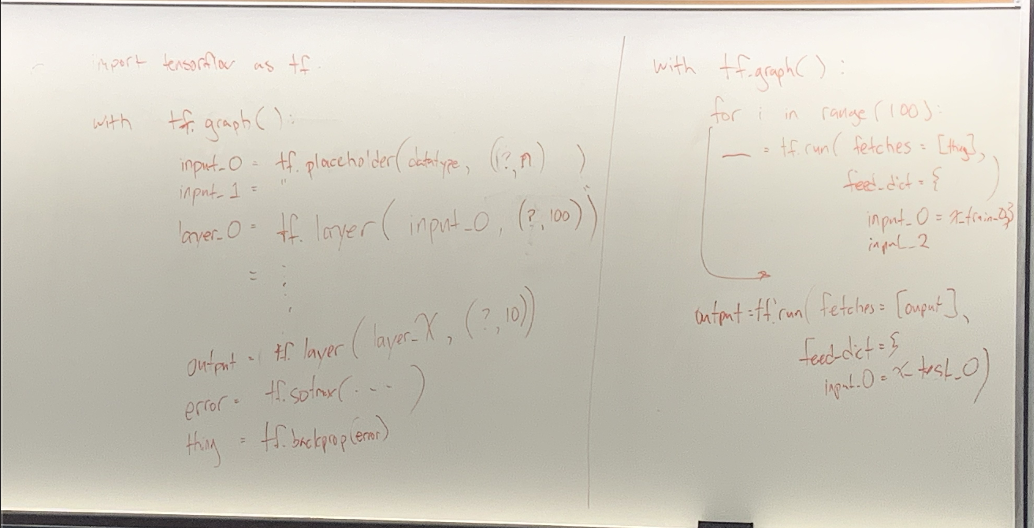 import tensorflow as tf.
with tf.graph():
input_0 = tf.placeholder(datatype, (?, n) )
input_1 = "
layer_0 = tf.layer( input_0, (?, 100))
= :
:
output = tf.layer(layer_X, (?, 10))
error = tf.sotmax(....)
thing = tf.backprop(error)
with tf.graph():
for i in range(100):
__ = tf.run( fetches = [thing],
feed_dict = {
input_0 = x_train_0})
input_2
output = tf.run( fetches = [ouput],
feed_dict = {
input_0 = x_test_0)